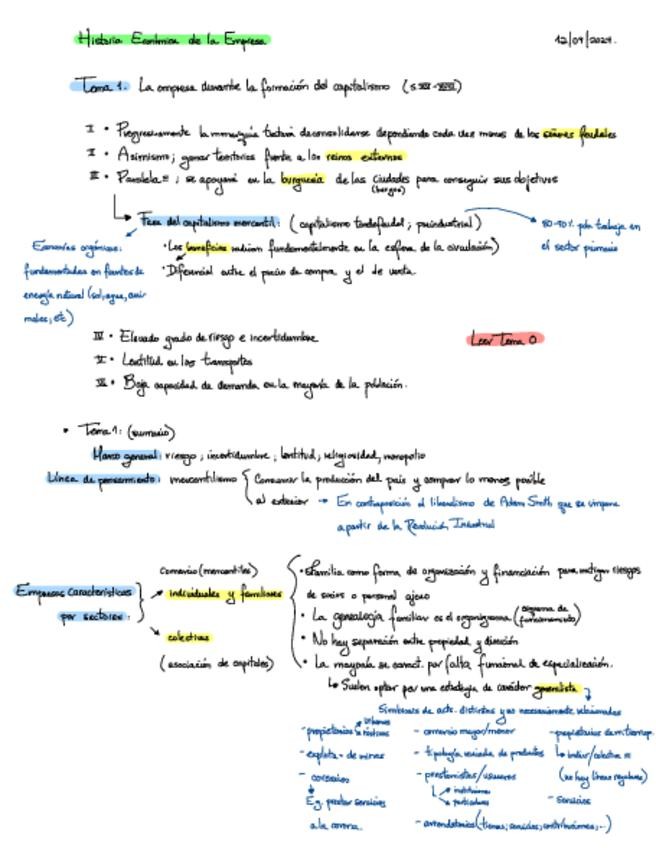 Historia Económica de la Empresa
12/09/2024.
Tema 1. La empresa durante la formación del capitalismo (s. XVI - XVIII)
I • Progresivamente la monarquía tratará de consolidarse dependiendo cada vez menos de los señores feudales
I • Asimismo; ganar territorios frente a los reinos externos
III • Paralela=; se apoyará en la burguesía de las ciudades para conseguir sus objetivos
(burgos)
Fase del capitalismo mercantil: (capitalismo tardofeudal; preindustrial)
80-90% pob trabaja en
el sector primario
Economías orgánicas:
fundamentadas en fuentes de
energía natural (sol, agua, ani-
males, etc)
• Los beneficios radican fundamentalmente en la esfera de la circulación)
• Diferencial entre el precio de compra y el de venta.
IV • Elevado grado de riesgo e incertidumbre
Leer Tema 0
V • Lentitud en los transportes
VI • Baja capacidad de demanda en la mayoría de la población.
• Tema 1: (sumario)
Marco general: riesgo; incertidumbre; lentitud; religiosidad; monopolio
Línea de pensamiento: mercantilismo { Consumir la producción del país y comprar lo menos posible
al exterior → En contraposición al liberalismo de Adam Smith que se impone
a partir de la Revolución Industrial
Empresas características
por sectores:
comercio (mercantiles)
individuales y familiares
colectivas
(asociación de capitales)
• Familia como forma de organización y financiación para mitigar riesgos
de socios o personal ajeno
• La genealogía familiar es el organigrama (diagrama de funcionamiento)
• No hay separación entre propiedad y dirección
• La mayoría se caract. por falta funcional de especialización.
↳ Suelen optar por una estrategia de carácter generalista
Simbiosis de acts. distintas y no necesariamente relacionadas
- propietarios urbanos rústicos
- explota- de minas
- corsarios
Eg. prestar servicios
a la corona.
- comercio mayor/menor
- tipología variada de productos
- prestamistas/usureros
instituciones
particulares
- arrendatarios (tierras; servicios; contribuciones,...)
- propietarios de m. transp.
↳ indiv/colectiva =
(no hay líneas regulares)
- servicios